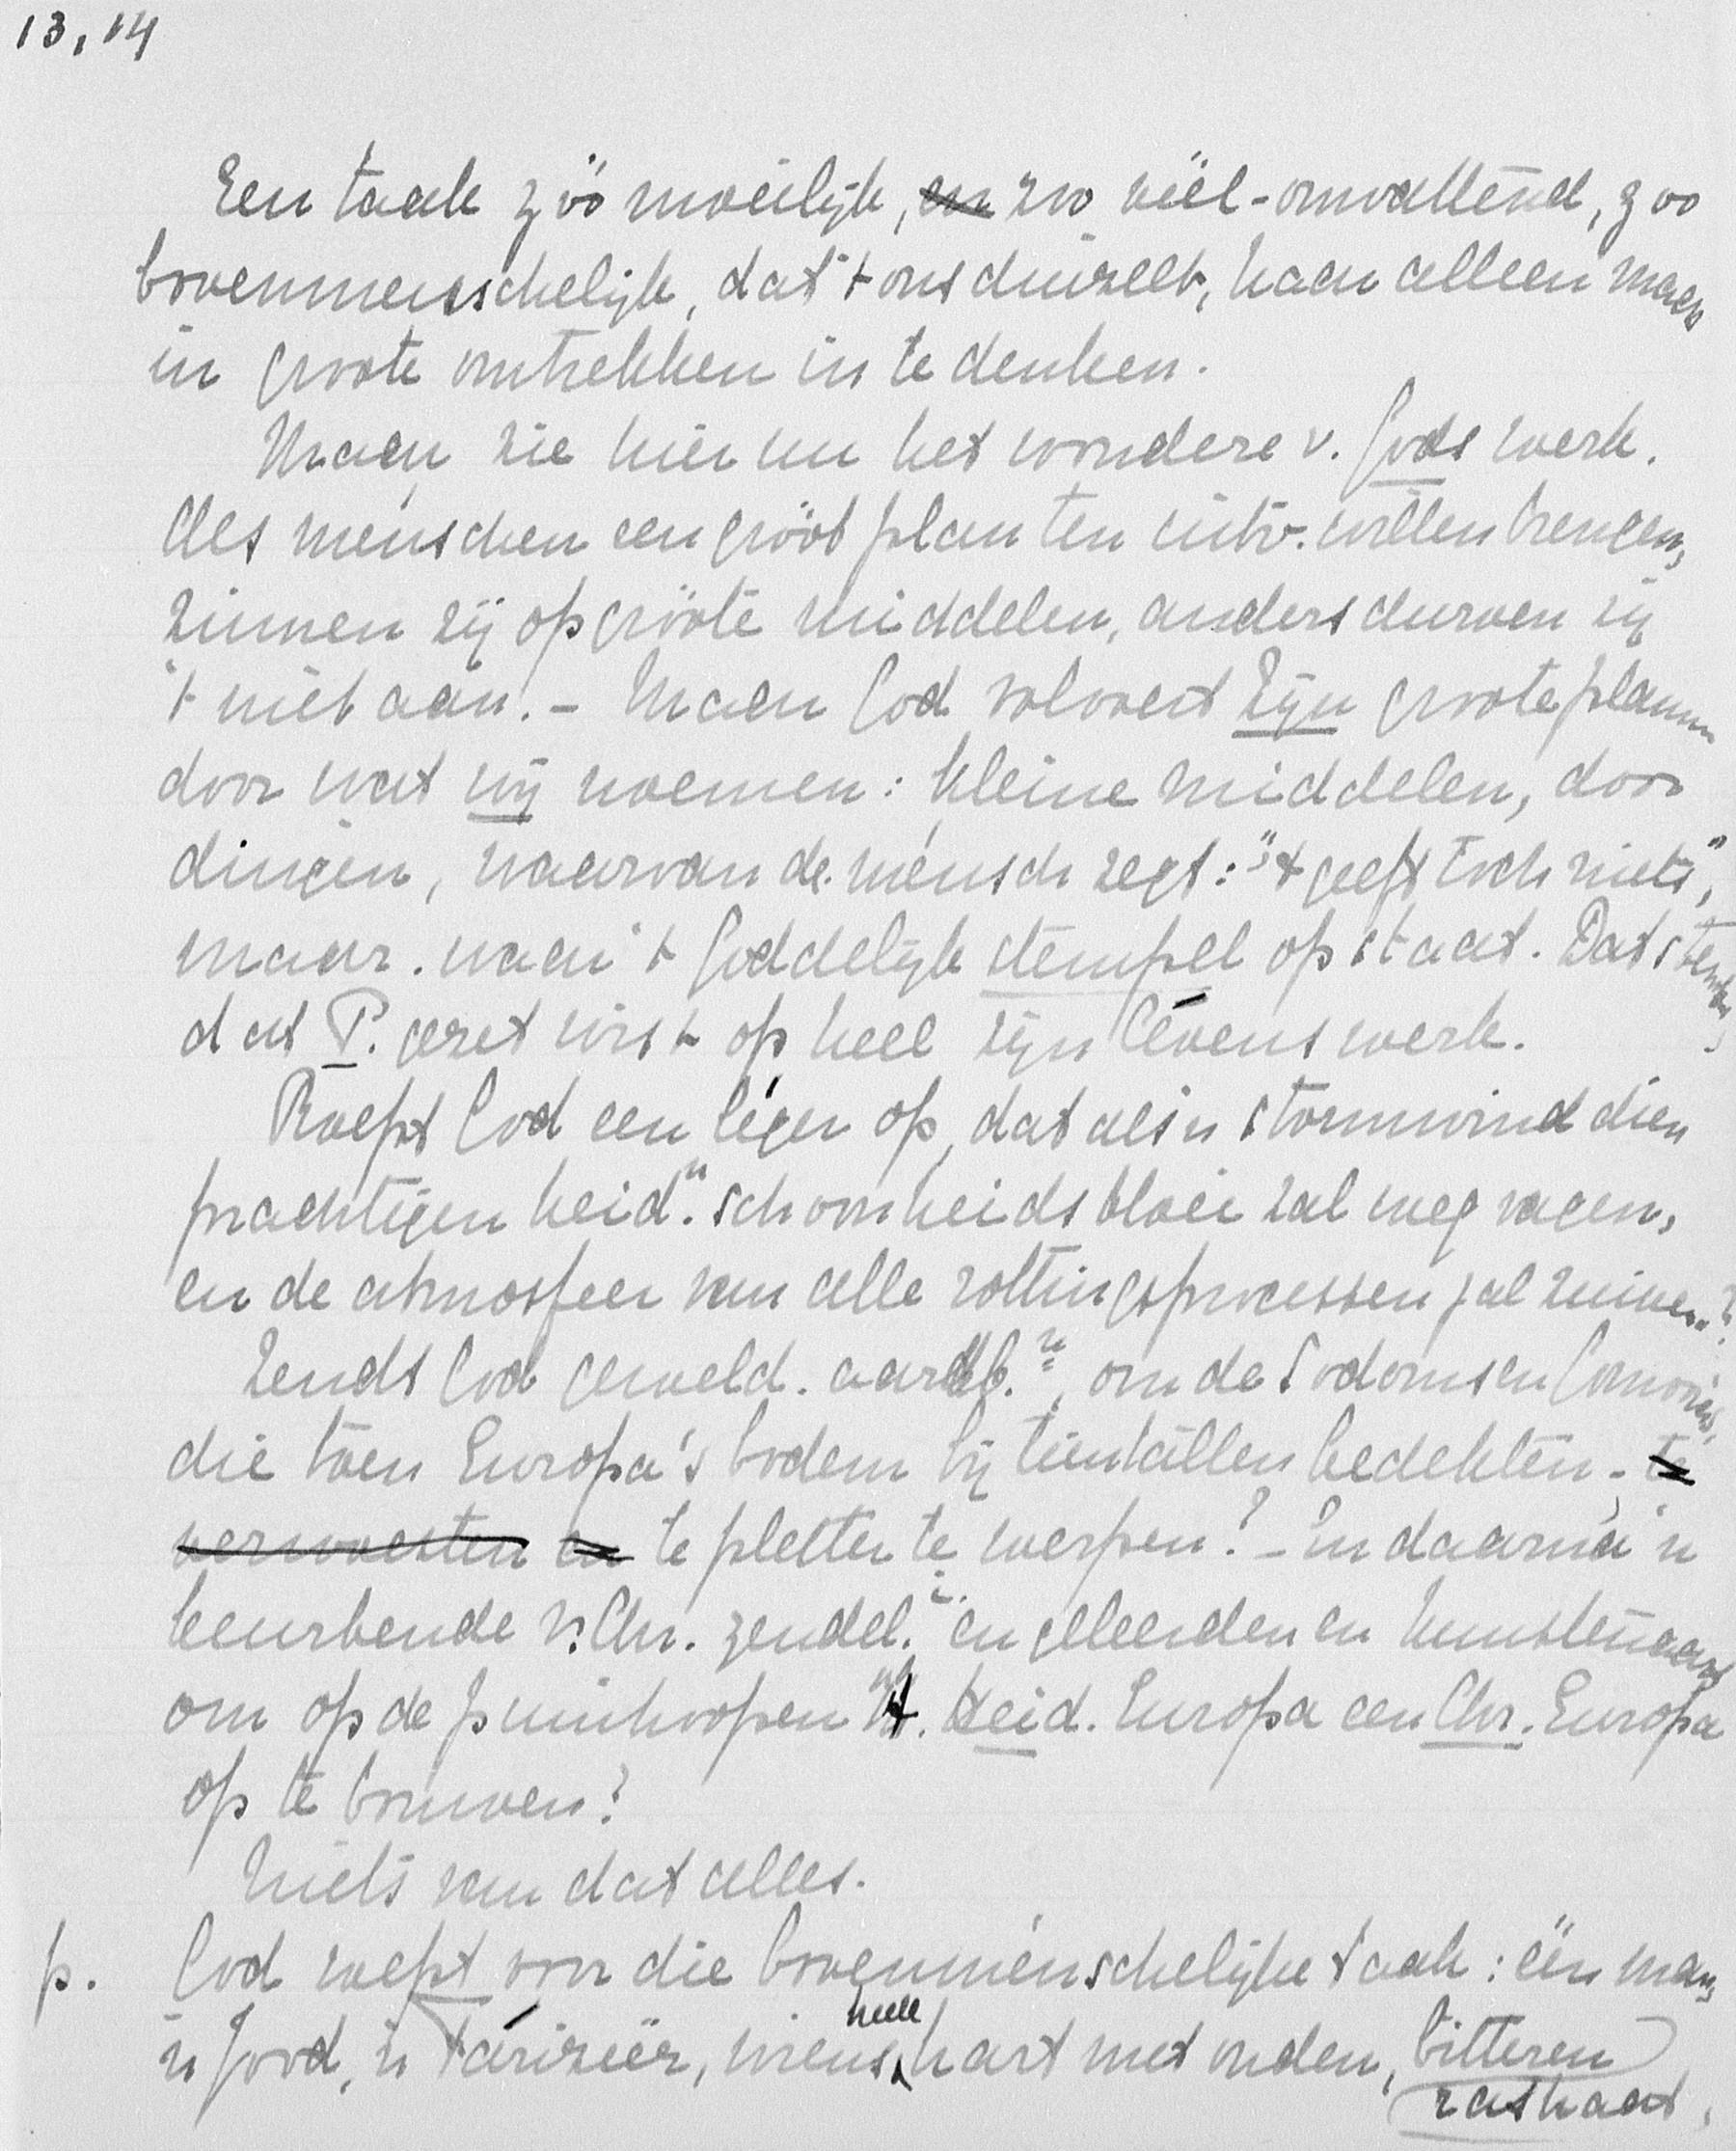 13, 14
Een taak zóó moeilijk, en zoo véél-omvattend, zoo
bovenmenschelijk, dat 't ons duizelt, haar alleen maar
in groote omtrekken in te denken.
Maar zie hier nu het wondere v. Gods werk.
Als ménschen een gróót plan ten uitv. willen brengen,
zinnen zij op gróóte middelen, anders durven zij
't niet aan. – Maar God volvoert Zijn groote plannen
door wat wij noemen: kleine middelen, door
dingen, waarvan de ménsch zegt: "'t geeft toch niets",
maar waar 't Goddelijk stempel op staat. Dat stempel,
dat P. gezet wist op heel zijn lévenswerk.
Roept God een léger op, dat als 'n stormwind dien
prachtigen heid.n schoonheidsbloei zal wegvagen,
en de atmosfeer van alle rottingsprocessen zal zuiveren?
Zendt God geweld. aardb.n, om de Sodoms en Gomorra's,
die toen Europa's bodem bij tientallen bedekten, te
verwoesten en te pletter te werpen? – En daarná 'n
keurbende v. Chr. zendel.n en geleerden en kunstenaars
om op de puinhoopen v.h. Heid. Europa een Chr. Europa
op te bouwen?
Niets van dat alles.
p. God roept voor die bovenménschelijke taak: één man,
'n Jood, 'n Farizeër, wiens heele hart met ouden, bitteren
rashaat,